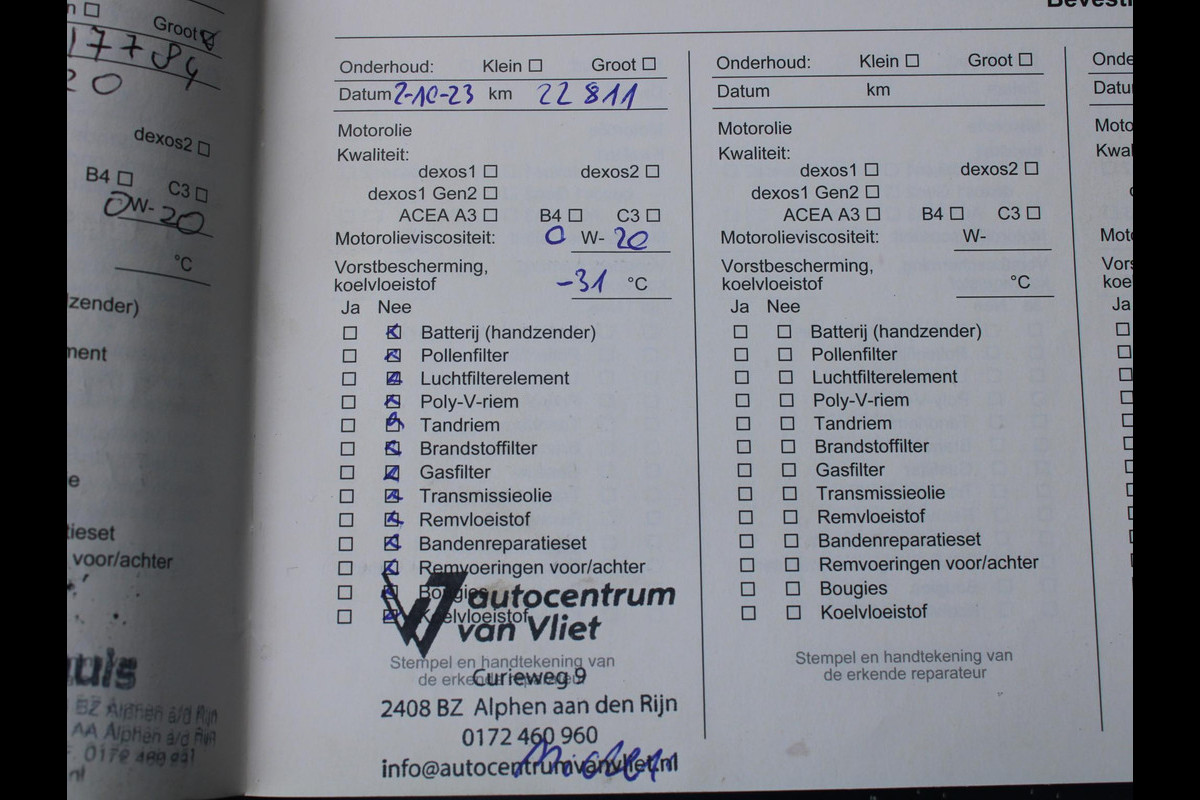 Groot
17784
20
dexos2
B4 C3
0W-20
°C
voor/achter
BZ Alphen a/d Rijn
AA Alphen a/d Rijn
Onderhoud: Klein Groot
Datum 2-10-23 km 22811
Motorolie
Kwaliteit:
dexos1 dexos2
dexos1 Gen2
ACEA A3 B4 C3
Motorolieviscositeit: 0 W- 20
Vorstbescherming,
koelvloeistof -31 °C
Ja Nee
Batterij (handzender)
Pollenfilter
Luchtfilterelement
Poly-V-riem
Tandriem
Brandstoffilter
Gasfilter
Transmissieolie
Remvloeistof
Bandenreparatieset
Remvoeringen voor/achter
Bougies
Koelvloeistof
autocentrum
van Vliet
Stempel en handtekening van
de erkende reparateur
Curieweg 9
2408 BZ Alphen aan den Rijn
0172 460 960
info@autocentrumvanvliet.nl
Onderhoud: Klein Groot
Datum km
Motorolie
Kwaliteit:
dexos1 dexos2
dexos1 Gen2
ACEA A3 B4 C3
Motorolieviscositeit: W-
Vorstbescherming,
koelvloeistof °C
Ja Nee
Batterij (handzender)
Pollenfilter
Luchtfilterelement
Poly-V-riem
Tandriem
Brandstoffilter
Gasfilter
Transmissieolie
Remvloeistof
Bandenreparatieset
Remvoeringen voor/achter
Bougies
Koelvloeistof
Stempel en handtekening van
de erkende reparateur
Ja